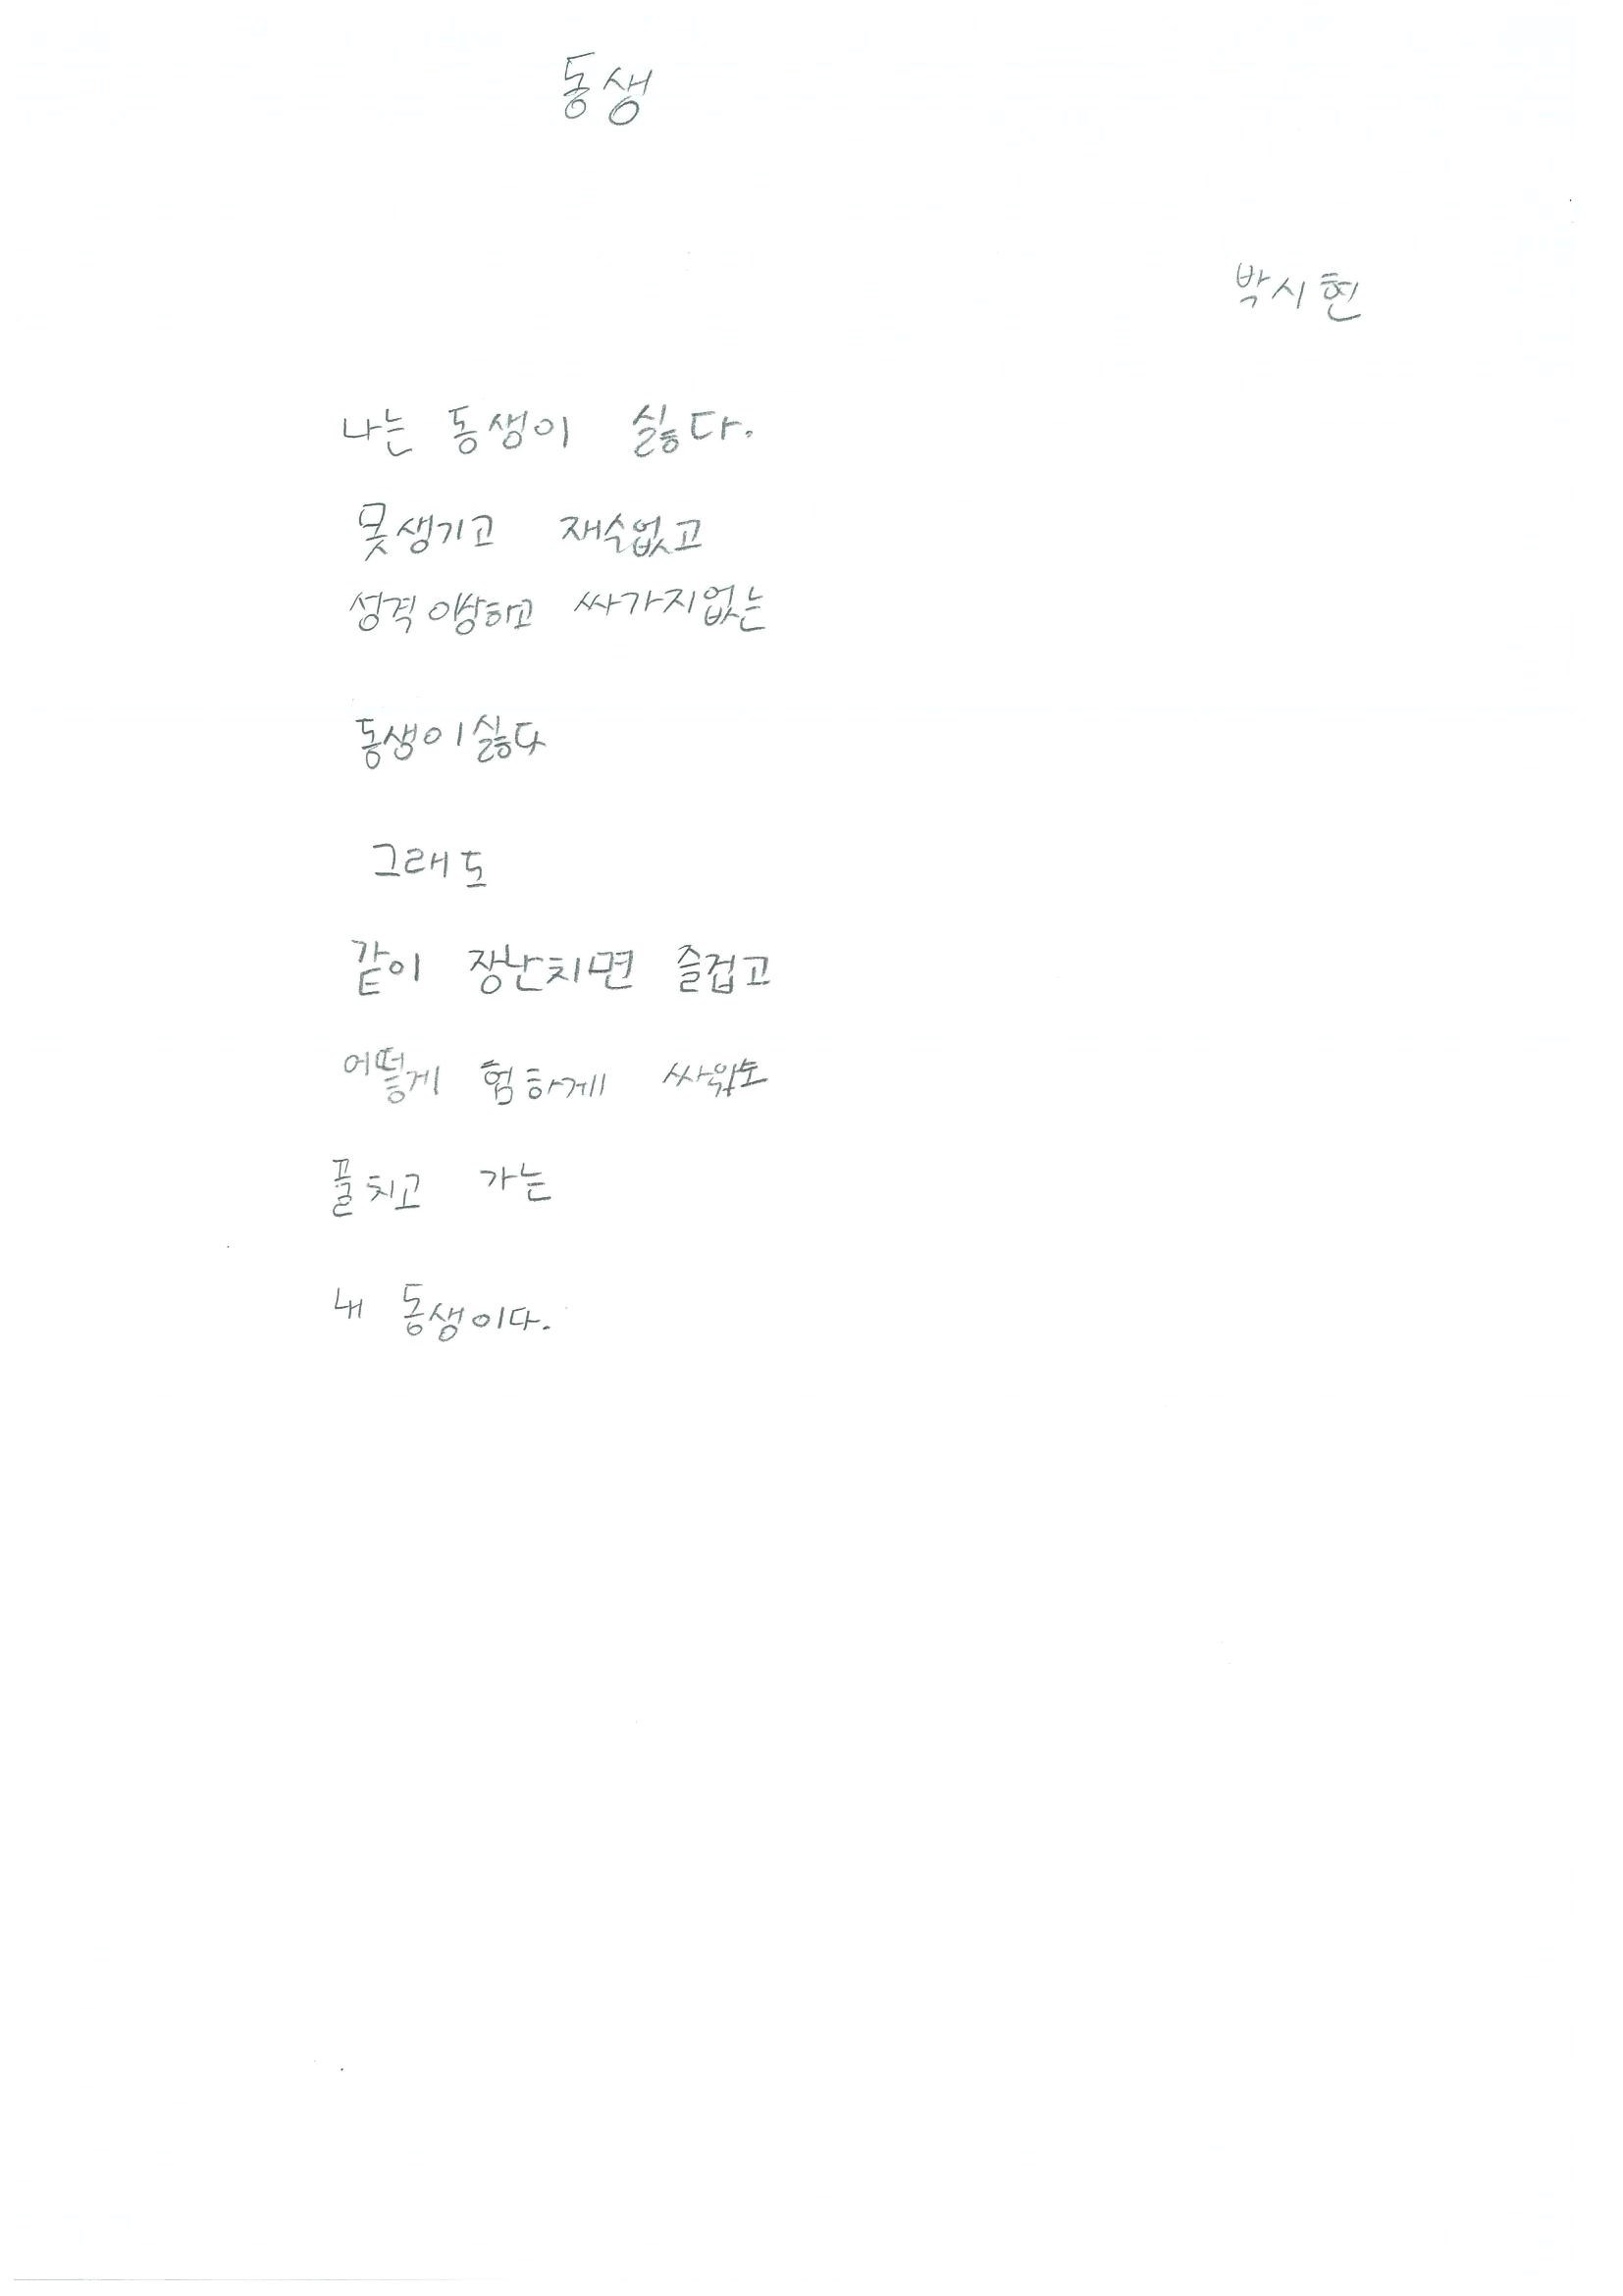 동생
박시현
나는 동생이 싫다.
못생기고 재수없고
성격이상하고 싸가지없는
동생이싫다
그래도
같이 장난치면 즐겁고
어떻게 험하게 싸워도
풀치고 가는
내 동생이다.